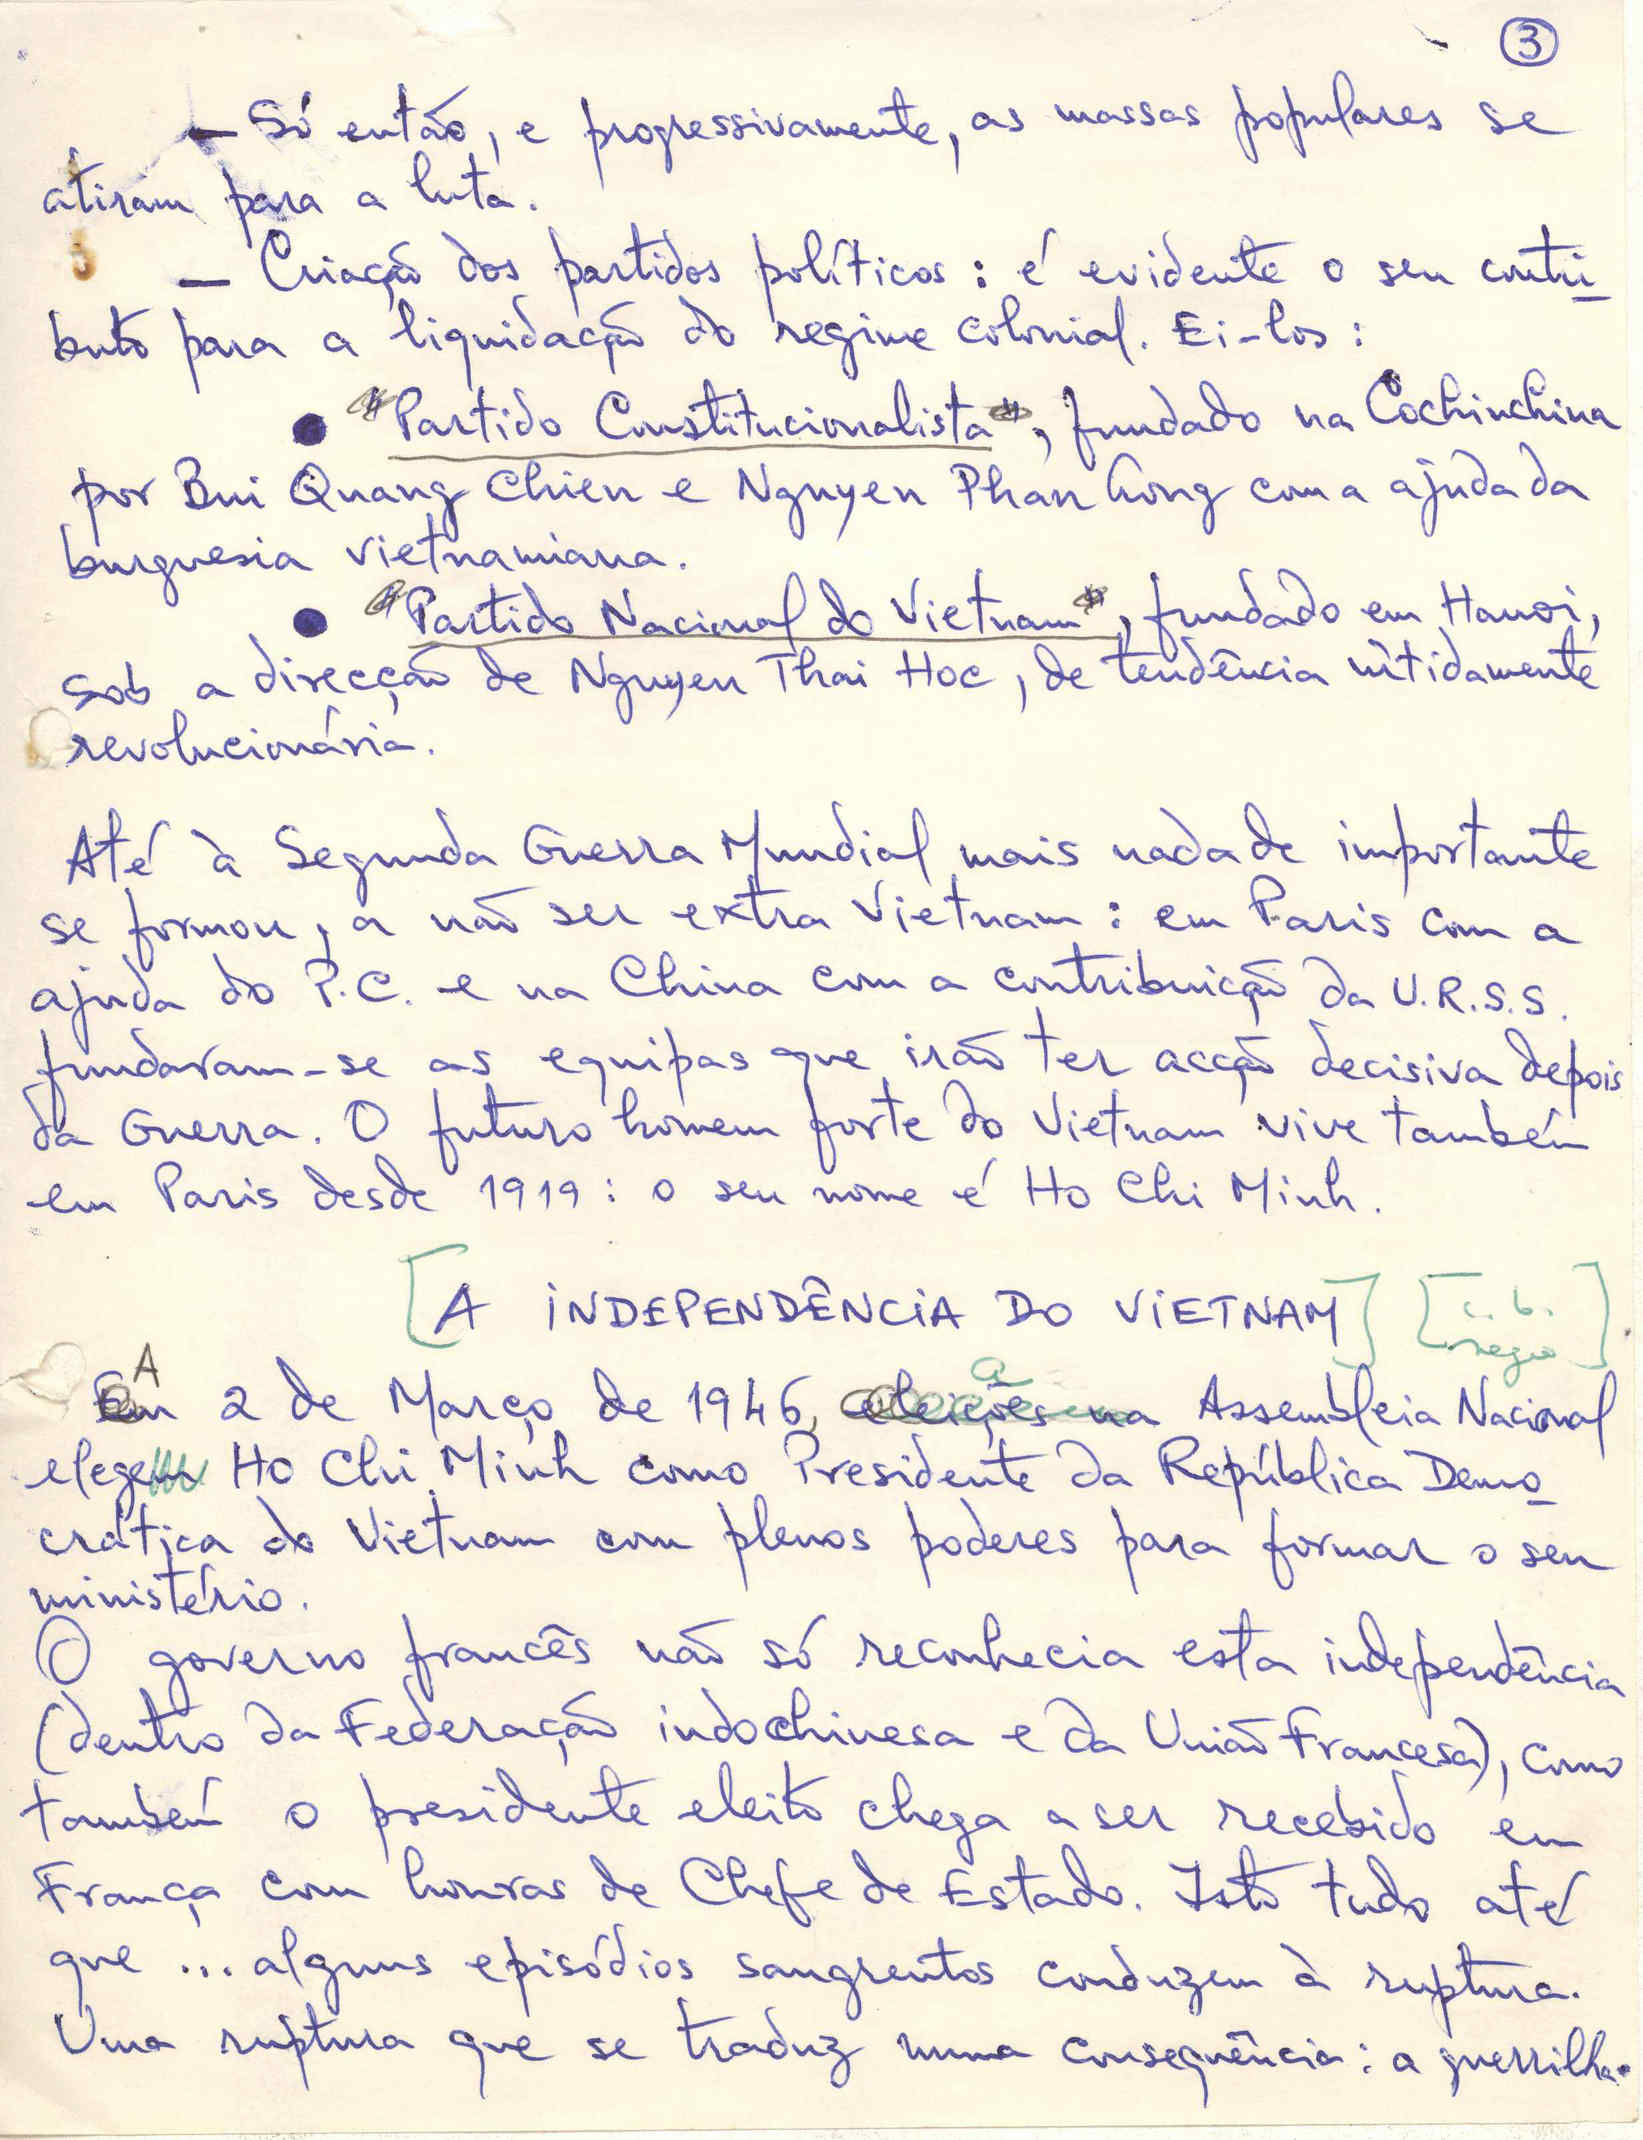 3
— Só então, e progressivamente, as massas populares se
atiram para a luta.
— Criação dos partidos políticos: é evidente o seu contri-
buto para a liquidação do regime colonial. Ei-los:
● "Partido Constitucionalista", fundado na Cochinchina
por Bui Quang Chien e Nguyen Phan Long com a ajuda da
burguesia vietnamiana.
● "Partido Nacional do Vietnam", fundado em Hanoi,
sob a direcção de Nguyen Thai Hoc, de tendência nìtidamente
revolucionária.
Até à Segunda Guerra Mundial mais nada de importante
se formou, a não ser extra Vietnam: em Paris com a
ajuda do P.C. e na China com a contribuição da U.R.S.S.
fundaram-se as equipas que irão ter acção decisiva depois
da Guerra. O futuro homem forte do Vietnam vive também
em Paris desde 1919: o seu nome é Ho Chi Minh.
[A INDEPENDÊNCIA DO VIETNAM] [c. b. negro]
A 2 de Março de 1946, a Assembleia Nacional
elege Ho Chi Minh como Presidente da República Demo-
crática do Vietnam com plenos poderes para formar o seu
ministério.
O governo francês não só reconhecia esta independência
(dentro da Federação indochinesa e da União Francesa), como
também o presidente eleito chega a ser recebido em
França com honras de Chefe de Estado. Isto tudo até
que ... alguns episódios sangrentos conduzem à ruptura.
Uma ruptura que se traduz numa consequência: a guerrilha.